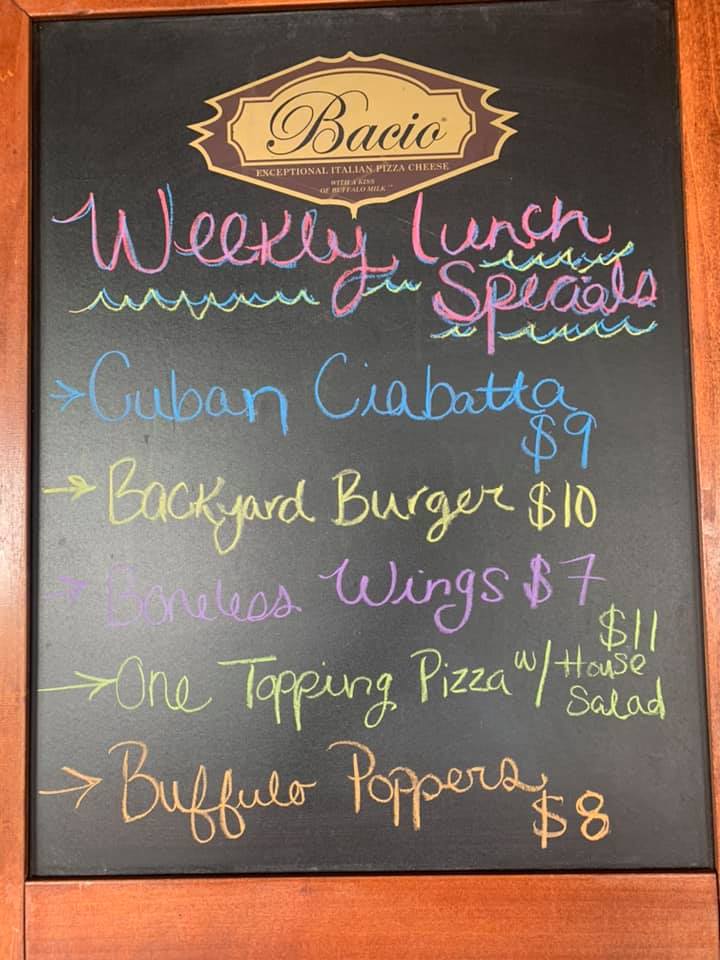 Bacio
EXCEPTIONAL ITALIAN PIZZA CHEESE
WITH A KISS
OF BUFFALO MILK™
Weekly Lunch
Specials
→ Cuban Ciabatta
$9
→ Backyard Burger $10
→ Boneless Wings $7
$11
→ One Topping Pizza w/ House
Salad
→ Buffulo Poppers
$8